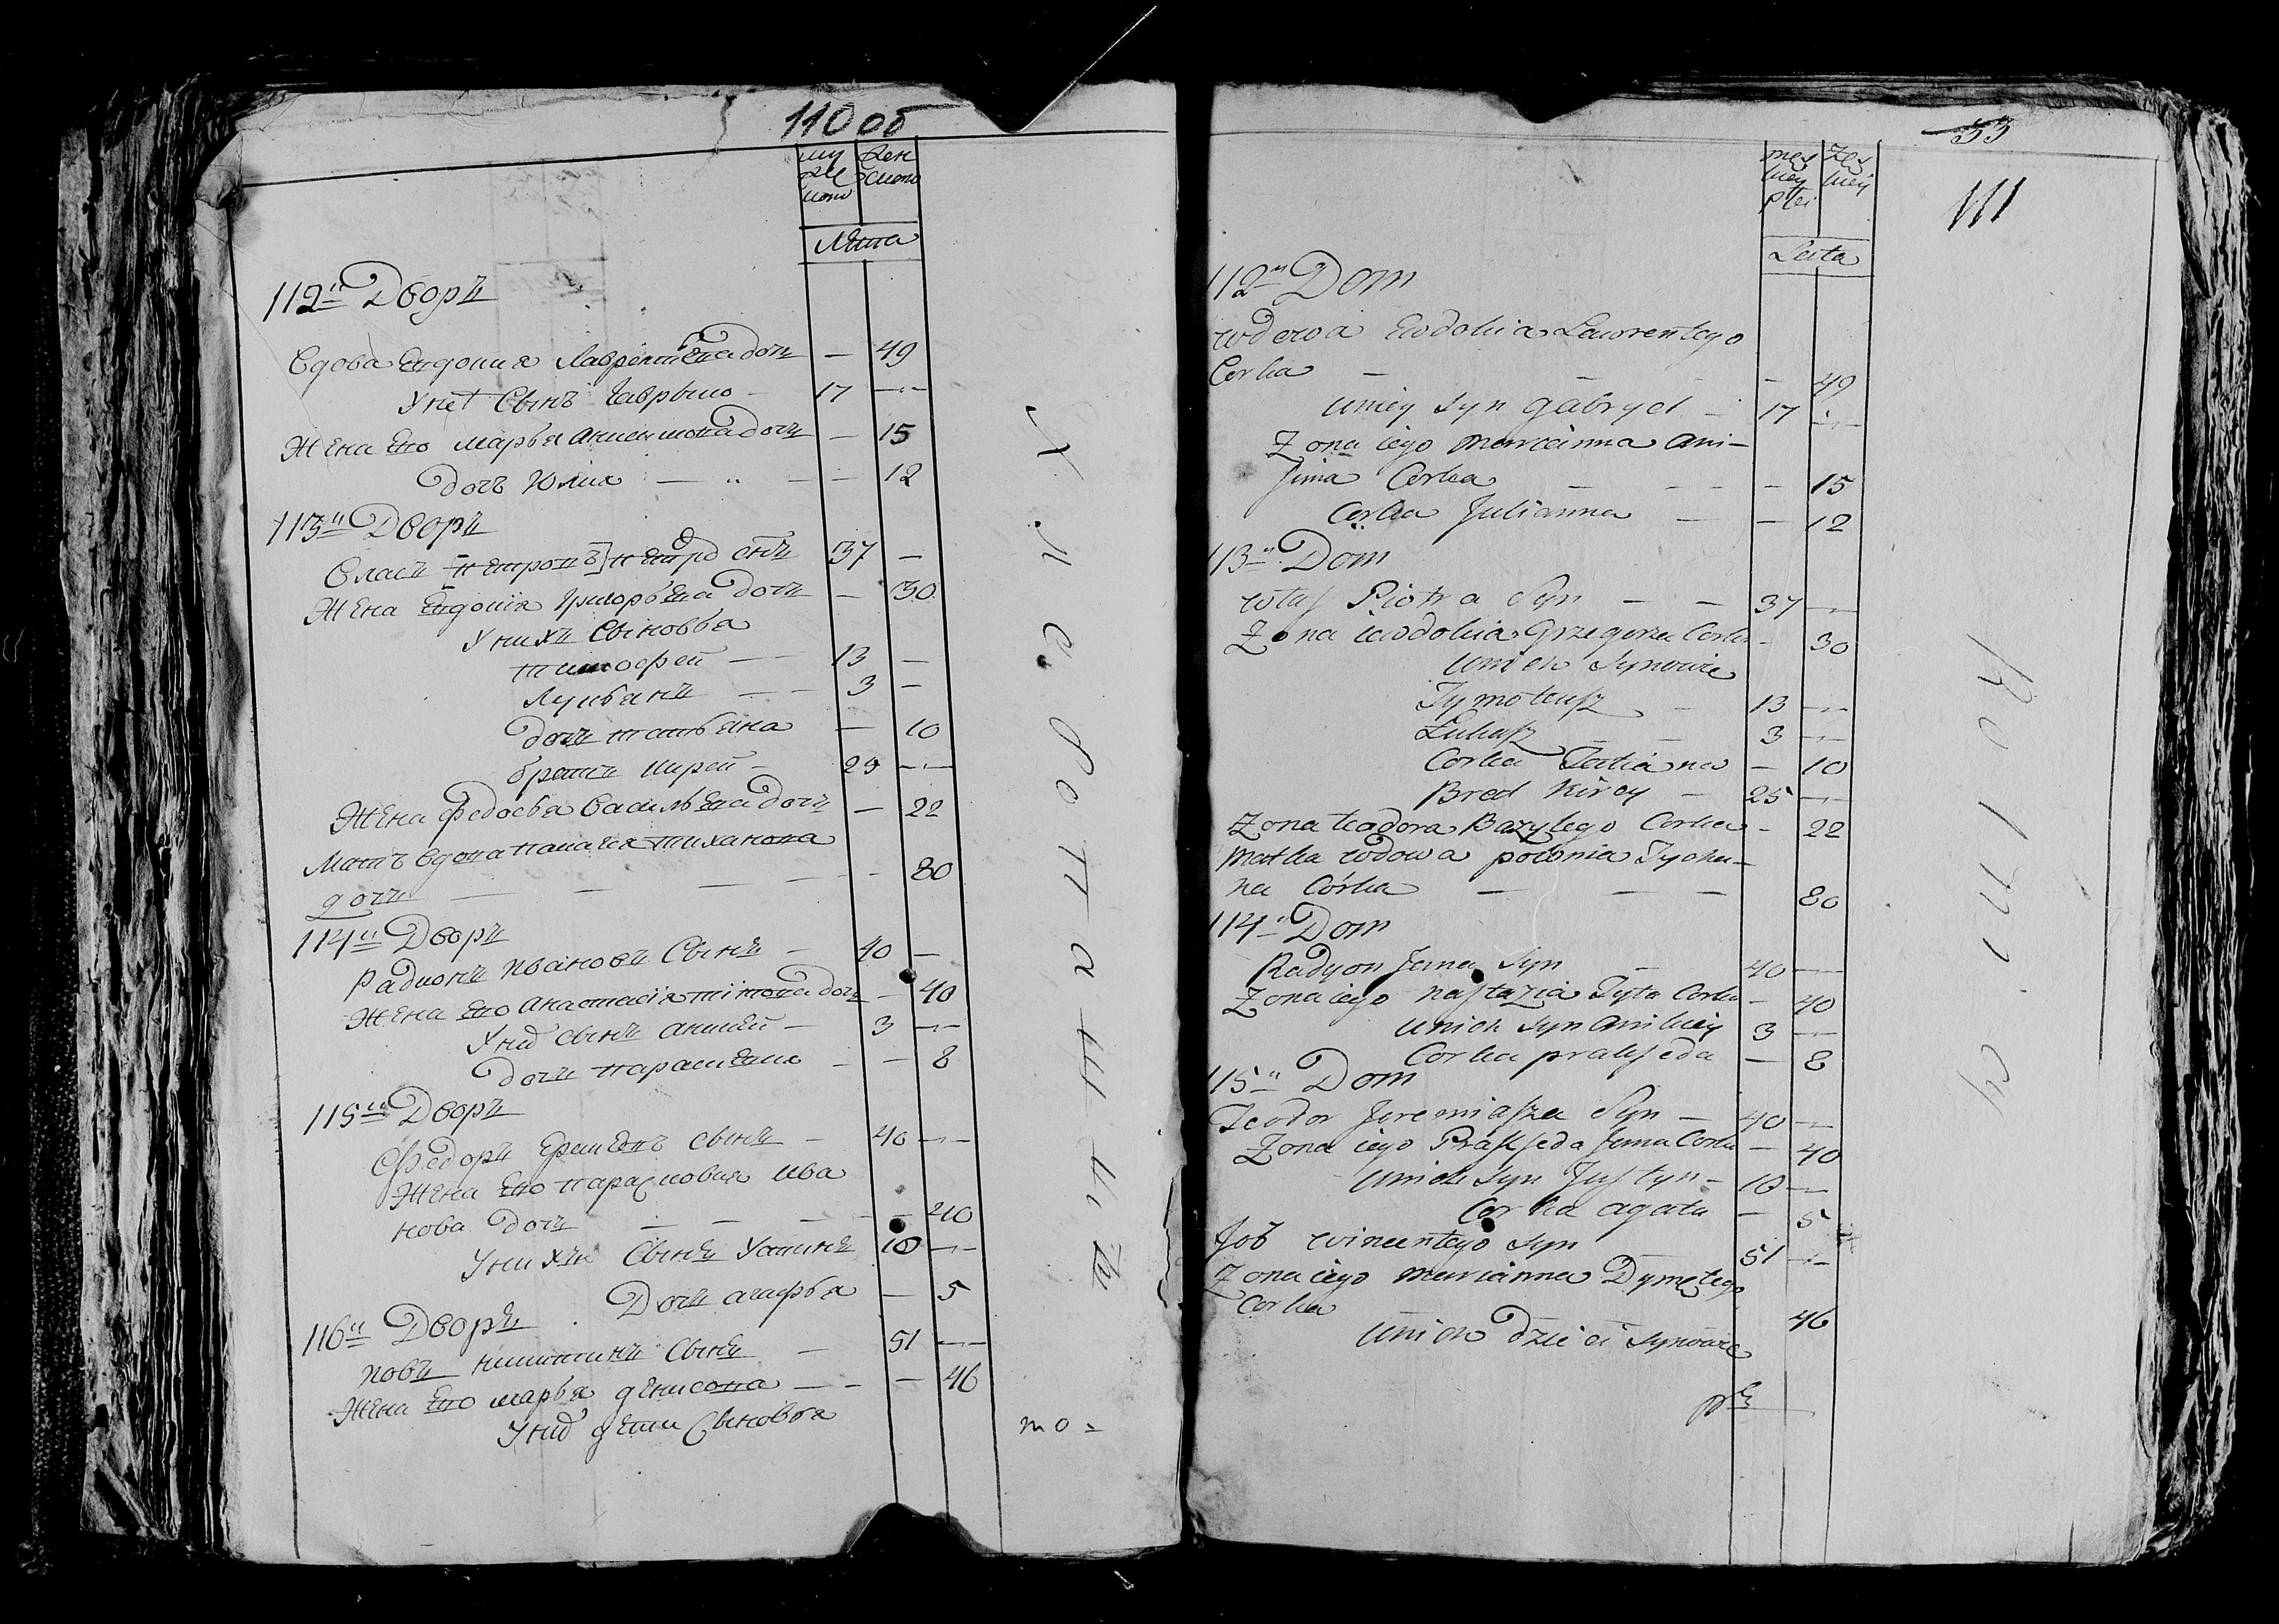 110 об
му
же
ского
жен
ского
Лѣта
112й Дворъ
Вдова Евдокия Лаврентьева дочь — 49
У нее Сынъ Гаврыло - 17 —
Жена Его марья Анисимова дочь — 15
дочь Юлия — — 12
113й Дворъ
Власъ Петровъ снъ 37 —
Жена Евдокия Григорьева дочь — 30
У нихъ Сыновья
тимофей — 13 —
Лукьянъ — 3 —
дочь татьяна — 10
братъ Кирей — 25 —
Жена федосья Васильева дочь — 22
Мать вдова тиханова
дочь — — — — 80
114й Дворъ
Радионъ Ивановъ Сынъ — 40 —
Жена Его Анастасия титова дочь — 40
У них сынъ аникей — 3 —
дочь — 8
115й Дворъ
Федоръ Еремеевъ сынъ — 40 —
Жена Его парасковия Ива
нова дочь — — — 40
У нихъ Сынъ Устинъ 10 —
Дочь агафья — 5
116й Дворъ
Иовъ Никитинъ Сынъ — 51 —
Жена Его марья денисова — — 46
У них дети Сыновья
Х и с о в а т а
mo =
53
111
męz
kiey
płci
Zeń
skiey
Lata
112й Dom
wdowa Ewdokia Lawrentego
Corka — — — 49
Uniey syn gabryel — 17 —
Zona iego maryanna Ani-
sima Corka — — — 15
Corka Julianna — — 12
113й Dom
Włas Piotra Syn — — 37 —
Zona Ewdokia Grzegorza Corka - 30
Unich Synowie
Tymoteusz — 13 —
Łukasz — 3 —
Corka Tatiana — 10
Brat Kirey — 25 —
Zona teodora Bazylego Corka - 22
Matka wdowa polonia Tycho-
na Córka — — — 80
114й Dom
Radyon Jana Syn — 40 —
Zona iego nastazia Tyta Corka — 40
Unich syn Anikiey 3 —
Corka praxseda — 8
115й Dom
Teodor Jeremiasza Syn — 40 —
Zona iego Praxseda Jana Corka — 40
Unich syn Justyn - 10 —
Corka agata — 5
Job wincentego syn 51 —
Zona iego maryanna
Corka 46
Unich dzieci synowie